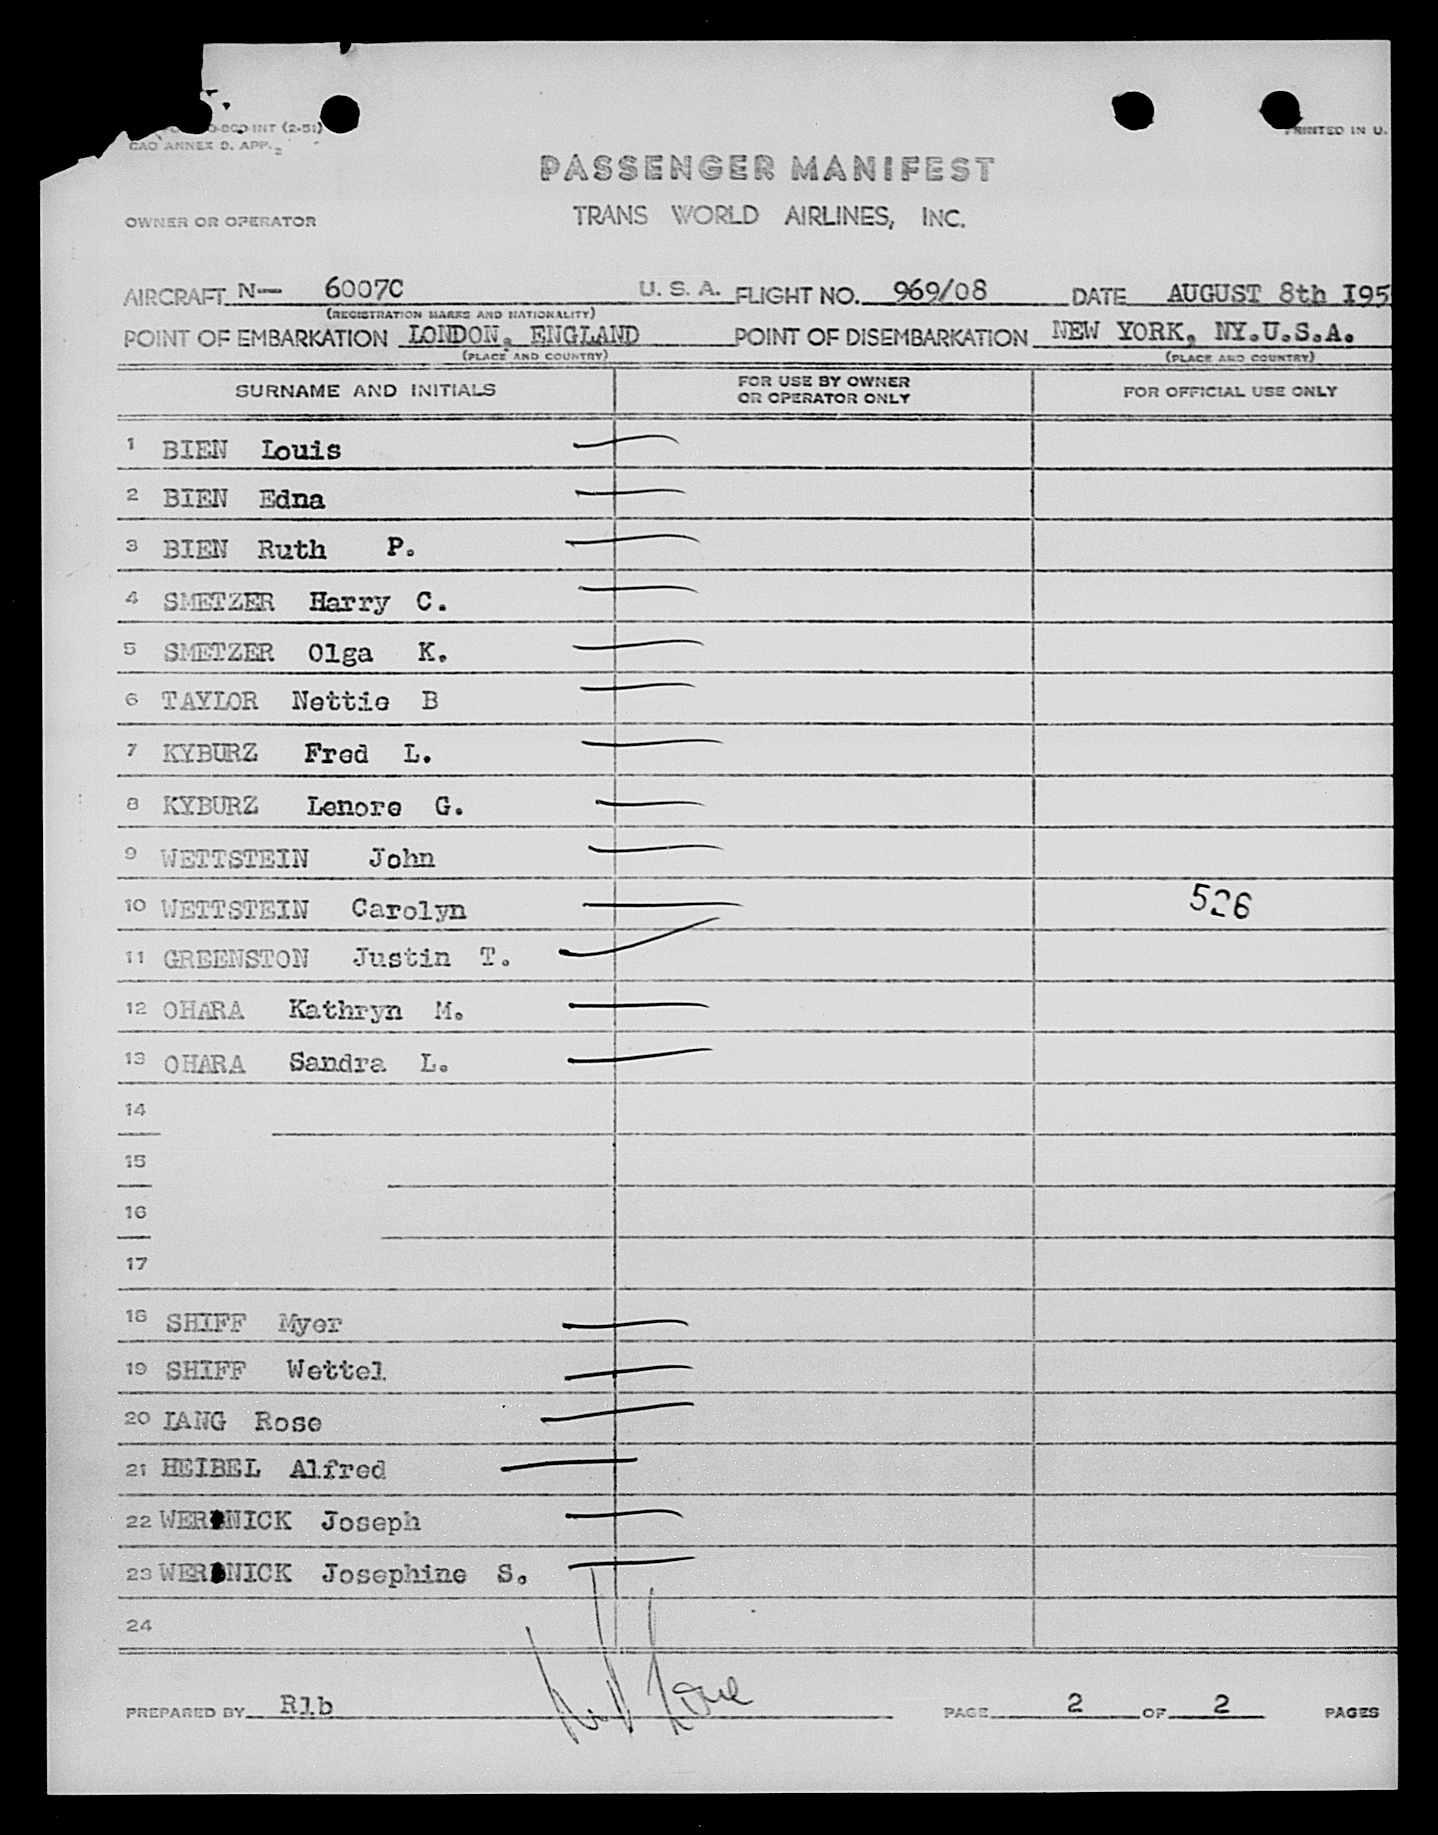 O-800 INT (2-51)
CAO ANNEX 9. APP.
PRINTED IN U.
PASSENGER MANIFEST
OWNER OR OPERATOR TRANS WORLD AIRLINES, INC.
AIRCRAFT N-- 6007C U. S. A. FLIGHT NO. 969/08 DATE AUGUST 8th I95
(REGISTRATION MARKS AND NATIONALITY)
POINT OF EMBARKATION LONDON, ENGLAND POINT OF DISEMBARKATION NEW YORK, NY.U.S.A.
(PLACE AND COUNTRY) (PLACE AND COUNTRY)
SURNAME AND INITIALS FOR USE BY OWNER OR OPERATOR ONLY FOR OFFICIAL USE ONLY
1 BIEN Louis
2 BIEN Edna
3 BIEN Ruth P.
4 SMETZER Harry C.
5 SMETZER Olga K.
6 TAYLOR Nettie B
7 KYBURZ Fred L.
8 KYBURZ Lenore G.
9 WETTSTEIN John
10 WETTSTEIN Carolyn 526
11 GREENSTON Justin T.
12 OHARA Kathryn M.
13 OHARA Sandra L.
14
15
16
17
18 SHIFF Myer
19 SHIFF Wettel
20 LANG Rose
21 HEIBEL Alfred
22 WERNICK Joseph
23 WERNICK Josephine S.
24
PREPARED BY Rlb PAGE 2 OF 2 PAGES